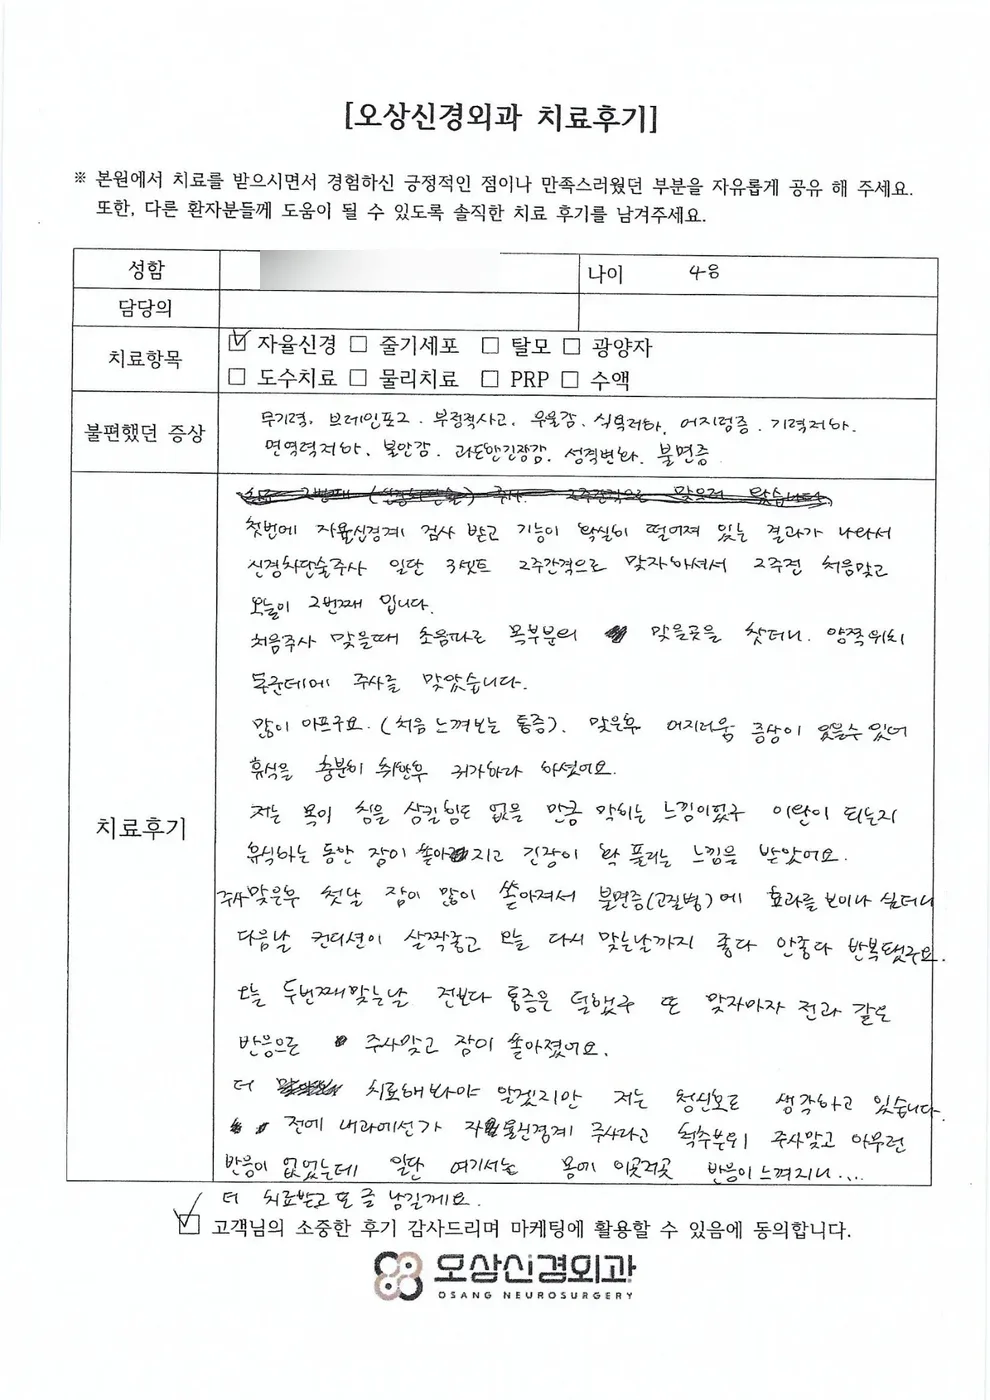 [오상신경외과 치료후기]
※ 본원에서 치료를 받으시면서 경험하신 긍정적인 점이나 만족스러웠던 부분을 자유롭게 공유 해 주세요.
또한, 다른 환자분들께 도움이 될 수 있도록 솔직한 치료 후기를 남겨주세요.
성함 나이 48
담당의
치료항목 ☑ 자율신경 □ 줄기세포 □ 탈모 □ 광양자
□ 도수치료 □ 물리치료 □ PRP □ 수액
불편했던 증상 무기력, 브레인포그. 부정적사고, 우울감, 식욕저하, 어지럼증. 기력저하.
면역력저하, 불안감, 과도한긴장감, 성격변화, 불면증
2번째 (신경차단술) 2주간격으로 맞으러 왔습니다
첫번에 자율신경계 검사 받고 기능이 확실히 떨어져 있는 결과가 나와서
신경차단술주사 일단 3셋트 2주간격으로 맞자하셔서 2주전 처음맞고
오늘이 2번째 입니다.
처음주사 맞을때 초음파로 목부분의 맞을곳을 찾더니. 양쪽위치
두군데에 주사를 맞았습니다.
많이 아프구요. (처음 느껴보는 통증). 맞은후 어지러움 증상이 있을수 있어
휴식을 충분히 취한후 귀가하라 하셨어요.
저는 목이 침을 삼킬힘도 없을 만큼 막히는 느낌이였구 이완이 되는지
휴식하는 동안 잠이 쏟아지고 긴장이 확 풀리는 느낌을 받았어요.
주사맞은후 첫날 잠이 많이 쏟아져서 불면증(고질병)에 효과를 보이나 싶더니
다음날 컨디션이 살짝좋고 오늘 다시 맞는날까지 좋다 안좋다 반복됐구요.
오늘 두번째맞는날 전보다 통증은 덜했구 또 맞자마자 전과 같은
반응으로 주사맞고 잠이 쏟아졌어요.
더 치료해봐야 알겠지만 저는 청신호로 생각하고 있습니다.
전에 내과에선가 자율신경계 주사라고 척추부위 주사맞고 아무런
반응이 없었는데 일단 여기서는 몸에 이곳저곳 반응이 느껴지니....
더 치료받고 또 글 남길께요.
치료후기
☑ 고객님의 소중한 후기 감사드리며 마케팅에 활용할 수 있음에 동의합니다.
오상신경외과
OSANG NEUROSURGERY